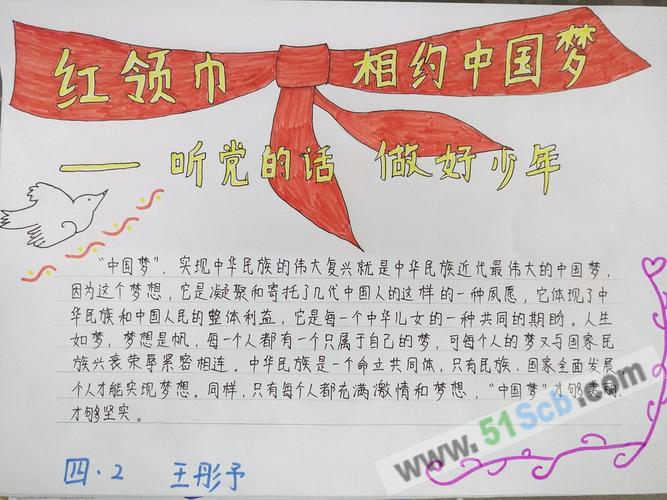 红领巾 相约中国梦
——听党的话 做好少年
“中国梦”，实现中华民族的伟大复兴就是中华民族近代最伟大的中国梦，
因为这个梦想，它是凝聚和寄托了几代中国人的这样的一种夙愿，它体现了中
华民族和中国人民的整体利益，它是每一个中华儿女的一种共同的期盼。人生
如梦，梦想是帆，每一个人都有一个只属于自己的梦，可每个人的梦又与国家民
族兴衰荣辱紧密相连。中华民族是一个命立共同体，只有民族、国家全面发展
个人才能实现梦想。同样，只有每个人都充满激情和梦想，“中国梦”才够美丽，
才够坚实。
四·2 王彤予
www.51Scb.com